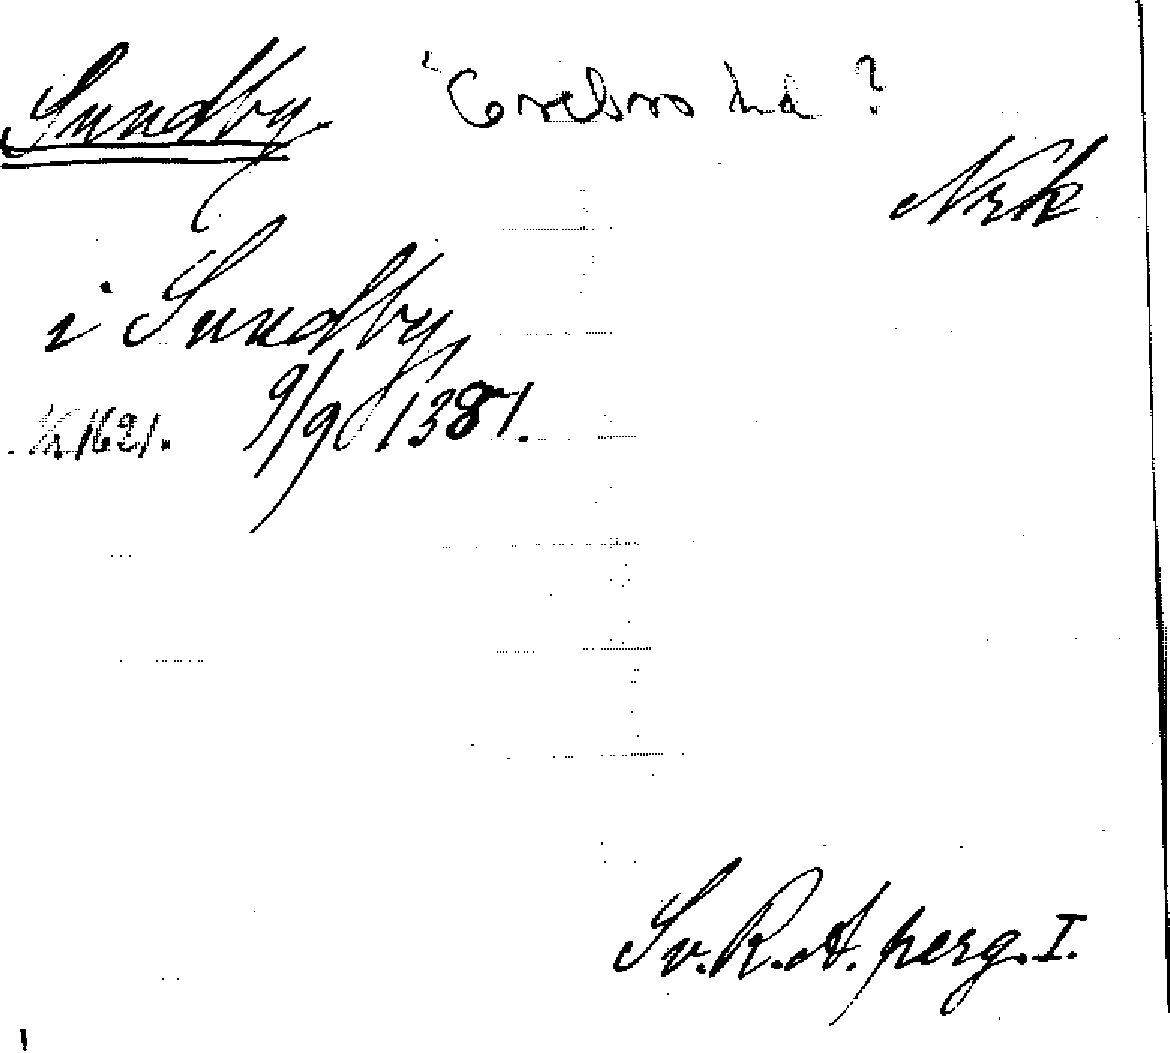 Sundby Örebro hd ?
Nrk
i Sundby,
n. 1621. 9/9 1381.
Sv. R. A. perg. I.